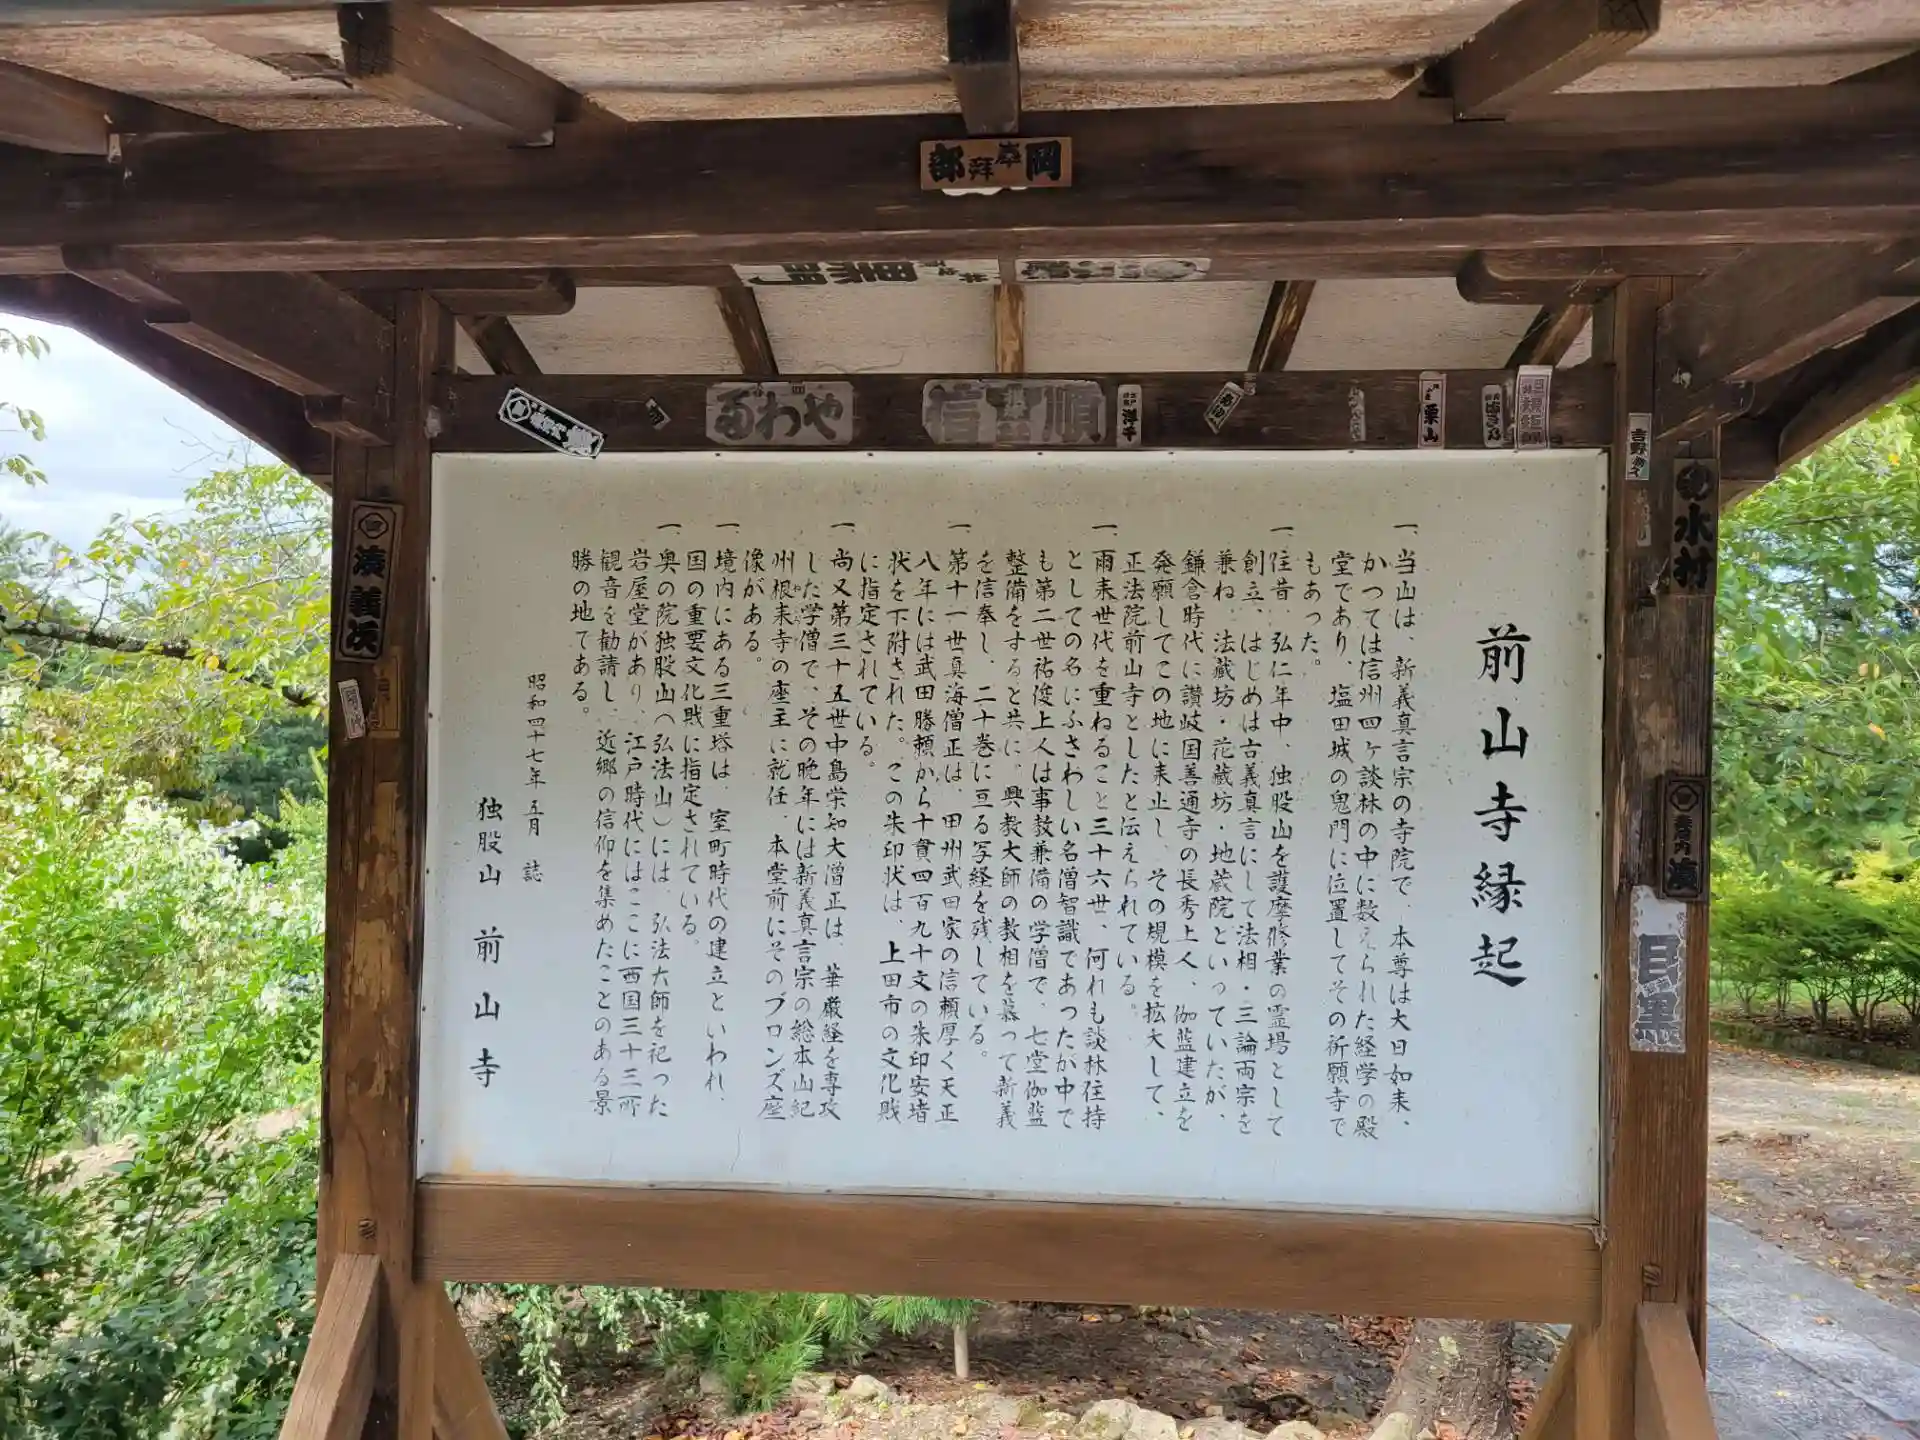 前山寺縁起
一、当山は、新義真言宗の寺院で、本尊は大日如来、
かつては信州四ヶ談林の中に数えられた経学の殿
堂であり、塩田城の鬼門に位置してその祈願寺で
もあった。
一、往昔、弘仁年中、独股山を護摩修業の霊場として
創立、はじめは古義真言にして法相・三論両宗を
兼ね、法蔵坊・花蔵坊・地蔵院といっていたが、
鎌倉時代に讃岐国善通寺の長秀上人、伽藍建立を
発願してこの地に来止し、その規模を拡大して、
正法院前山寺としたと伝えられている。
一、雨来世代を重ねること三十六世、何れも談林住持
としての名にふさわしい名僧智識であったが中で
も第二世祐俊上人は事教兼備の学僧で、七堂伽藍
整備をすると共に、興教大師の教相を慕って新義
を信奉し、二十巻に亘る写経を残している。
一、第十一世真海僧正は、甲州武田家の信頼厚く天正
八年には武田勝頼から十貫四百九十文の朱印安堵
状を下附された。この朱印状は、上田市の文化財
に指定されている。
一、尚又第三十五世中島栄知大僧正は、華厳経を専攻
した学僧で、その晩年には新義真言宗の総本山紀
州根来寺の座主に就任、本堂前にそのブロンズ座
像がある。
一、境内にある三重塔は、室町時代の建立といわれ、
国の重要文化財に指定されている。
一、奥の院独股山（弘法山）には、弘法大師を祀った
岩屋堂があり、江戸時代にはここに西国三十三所
観音を勧請し、近郷の信仰を集めたことのある景
勝の地である。
昭和四十七年五月 誌
独股山 前山寺
岡奉拝部
やわる
順信
洋千
栗山
吉野
水村
湊
湊義
目黒